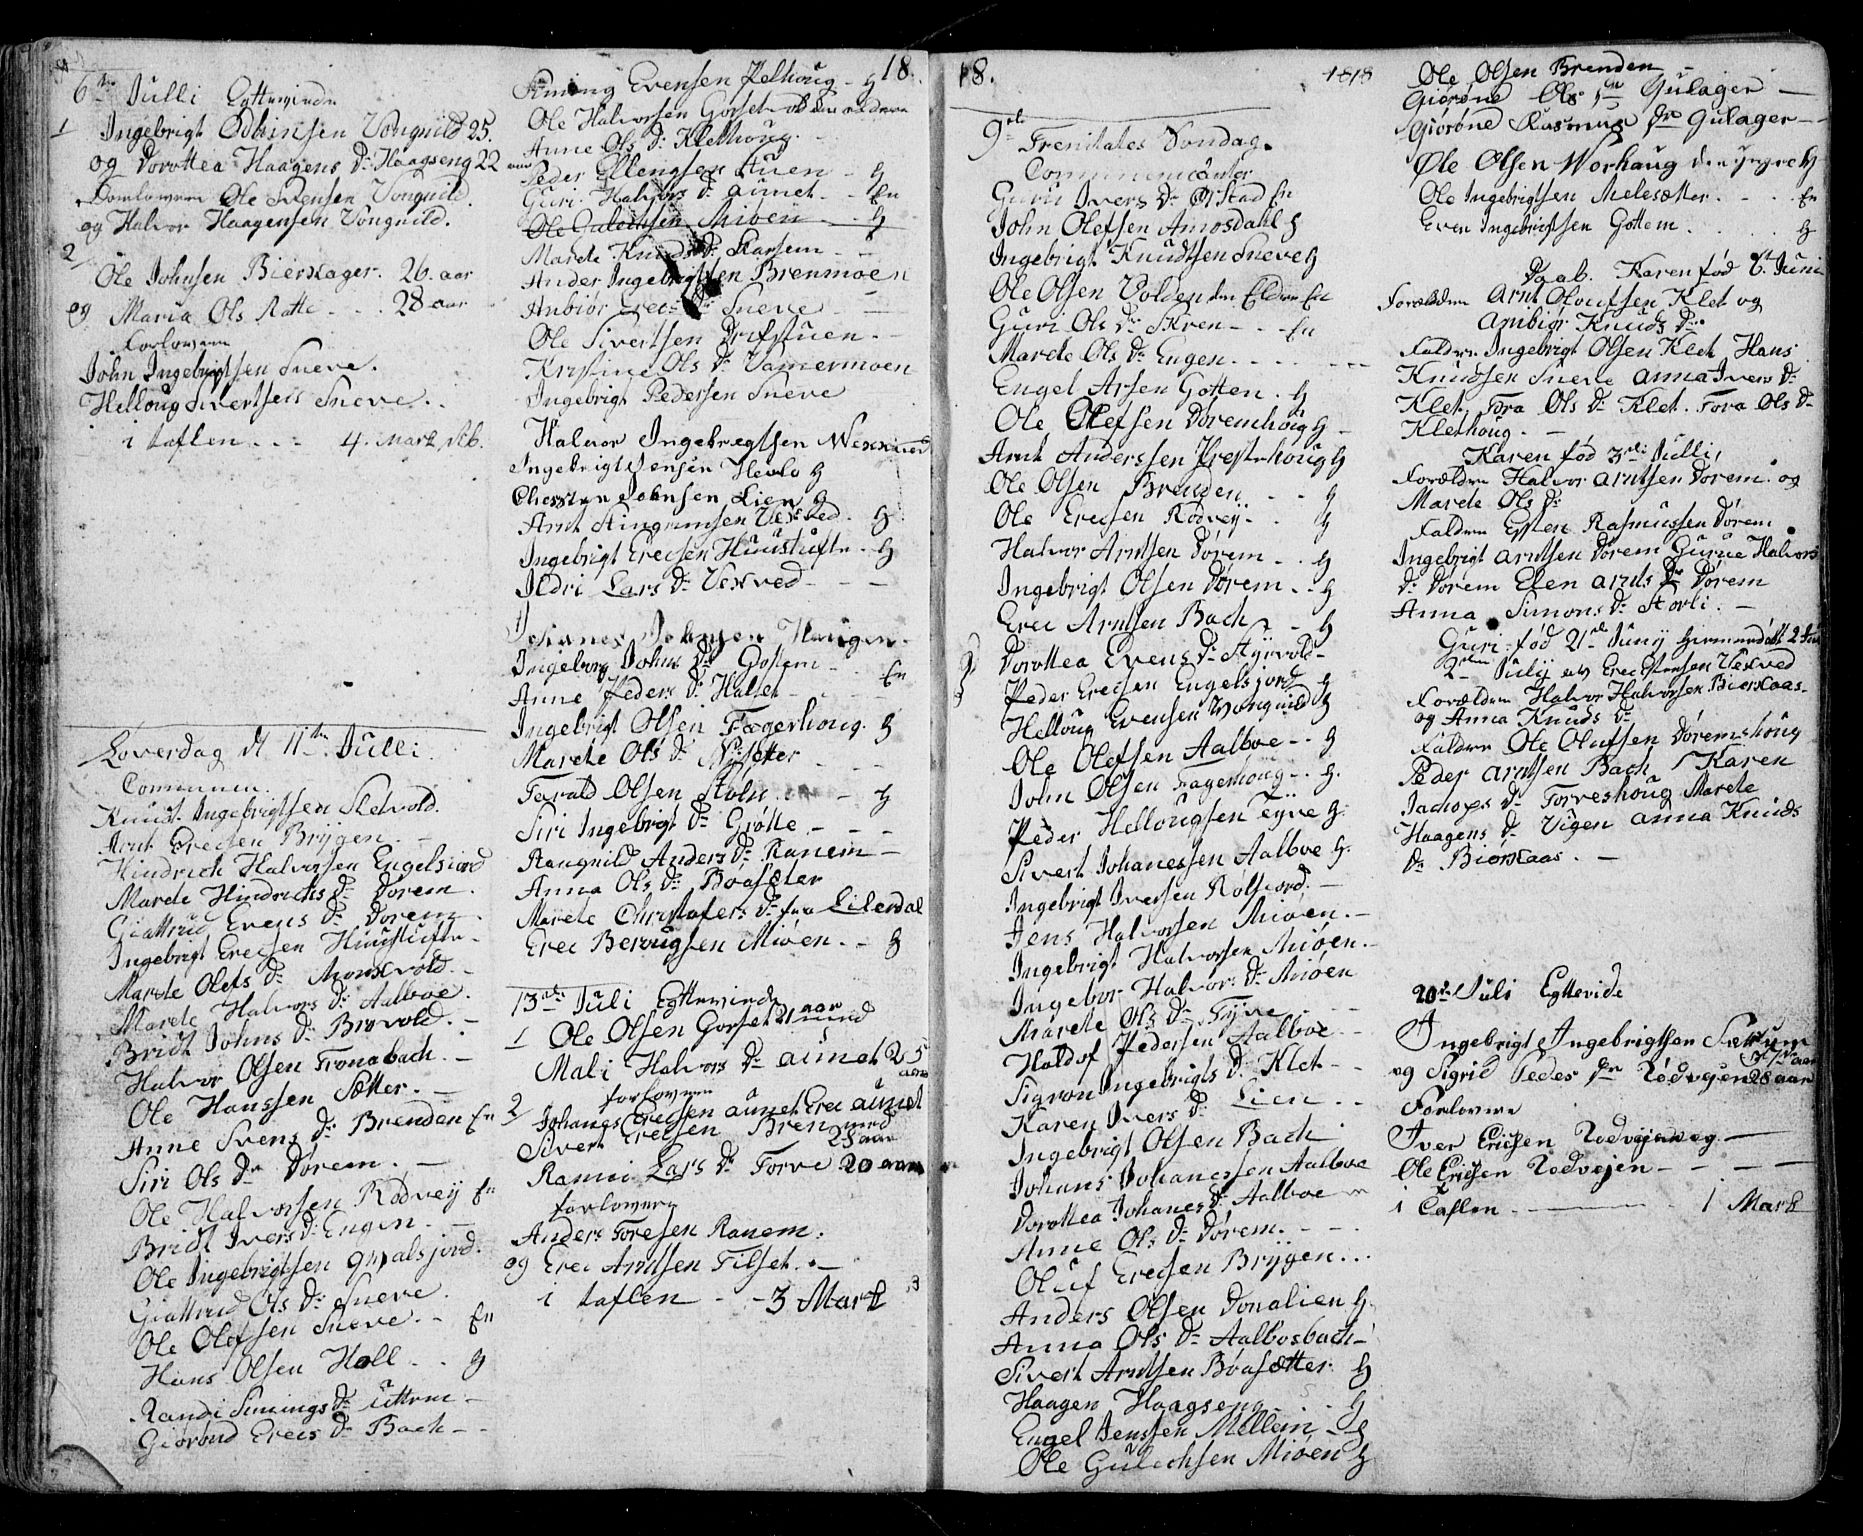 6te Julli Egteviede
1 Ingebrigt Odhinsen Vongnild 25.
og Dorottea Haagens Dr Haagseng 22 aar
Forlovere Ole Svensen Vongnild.
og Halvor Haagensen Vongnild.
2
Ole Johnsen Bierskager. 26. aar
og Maria Ols Ratte . . . 28 aar
Forlovere
John Ingebrigtsen Sneve.
Helloug Sivertsen Sneve . .
i taflen . . - 4. Mark
Loverdag d 11te Julli.
Communen.
Knud Ingebrigtsen Sletvold.
Arnt Erecsen Brÿgen. -
Hindrich Halvorsen Engelsiord
Marete Hindrichs Dr Dorem.
Giattrud Evens Dr Dorem.
Ingebrigt Erecsen Huustufte -
Marete Olefs Dr Monsvold. -
Marete Halvors Dr Aalboe.
Bridt Johns Dr Brøvold. -
Halvor Olsen Tronabach. -
Ole Hanssen Sætter. -
Anne Svens Dr Brenden En
Siri Ols Dr Dorem. -
Ole Halvorsen Rodveÿ En
Bridt Ivers Dr Engen. -
Ole Ingebrigtsen qvalsjord.
Giattrud Ols Dr Sneve.
Ole Olefsen Sneve. - En
Hans Olsen Holl . . g
Randi Simings Dr Uttem -
Giorond Erecs Dr Bach - -
18.
Siming Evensen Kelhoug - g
Ole Halvorsen Gorset
Anne Ols Dr Klethoug. -
Peder Ellengsen Stuen - g
Guri Halvors Dr aunet. - En
Ole Gulechsen Mioen - g
Marete Knuds Dr Skarsem - -
Ander Ingebrigtsen Brenmoen
Anbiør Erecs Dr Sneve - -
Ole Sivertsen Drifstuen. -
Kristine Ols Dr Vamermoen
Ingebrigt Pedersen Sneve
Halvor Ingebregtsen Wexved
Ingebrigt Jensen Hevlo g
Chersten Johnsen Lien g
Arnt Simgrimsen Vexved. g
Ingebrigt Erecsen Huustufte. g
Ildri Lars Dr Vexved - - -
Johannes Johnsen Haugen.
Ingeborg Johns Dr Gottem -
Anne Peders Dr Halset - . . En
Ingebrigt Olsen Fagerhoug. g
Marete Ols Dr Nisetter - - -
Farald Olsen Støln . . - g
Siri Ingebrigt Dr Grøtte - - -
Rangnild Anders Dr Ranem -
Anna Ols Dr Boasæter
Marete Christofers Dr fra Lilledal
Erec Berougsen Mioen. - g
13de Juli Egteviede
1 Ole Olsen Gorset 21 aar med
Mali Halvors Dr aunet 25 aar
forlovere
Johanes Erecsen aunet Erec aunet
2 Sivert Erecsen Bren med 28 aar
Ranni Lars Dr Torve 20 aar
forlovere
Anders Toresen Ranem.
og Erec Arntsen Tilset. -
i taflen - - 3 Mark
18. 1818
9de Trenitates Sondag.
Communicanter
Guru Ivers Dr Ørstad En
John Olefsen Amosdahl g
Ingebrigt Knudtsen Sneve g
Ole Olsen Volden den Eldere En
Guri Ols Dr Skren - . . En
Marete Ols Dr Engen. - - . . -
Engel Arsen Gotten . g
Ole Olefsen Doremhoug g -
Arnt Anderssen Presterhoug g
Ole Olsen Brenden . . g
Ole Erecsen Rodveÿ - . g
Halvor Arntsen Dørem . . g
Ingebrigt Olsen Dørem . . g
Erec Arntsen Bach - - g
Dorottea Evens Dr Styrvold -
Peder Erecsen Engelsjord g
Helloug Evensen Vongnild g
Ole Olefsen Aalboe - . g
John Olsen Fagerhoug - . g.
Peder Hellougsen Tÿve g.
Sivert Johanessen Aalboe g.
Ingebrigt Iversen Rolfsiord. -
Jens Halvorsen Mioen. -
Ingebrigt Halvorsen Mioen. -
Ingebor Halvor. Dr Mioen
Marete Ols Dr Tÿve - -
Haldof Pedersen Aalboe - -
Sigron Ingebrigts Dr Klet - -
Karen Ivers Dr Lien - .
Ingebrigt Olsen Bach .
Johans Johanessen Aalboe
Dorottea Johanes Dr Aalboe -
Anne Ols Dr Dørem. - -
Oluf Erecsen Brÿgen. . .
Anders Olsen Donalien g.
Anna Ols Dr Aalbosbach -
Sivert Arntsen Bøasætter. g
Haagen Haagseng. - . g
Engel Jenssen Mellem - g
Ole Gulechsen Mioen g
Ole Olsen Brenden -
Giørøne Ols Dr Gulager -
Giørøne Rasmus Dr Gulager - -
Øle Olsen Vorhaug den yngre g
Ole Ingebrigtsen Melesætter. . . En
Even Ingebrigtsen Gottem . . . g
Daab. Karen fød 6te Juni
Forældre Arnt Olufsen Klet og
Anbiør Knuds Dr
Faddre Ingebrigt Olsen Klet Hans
Knudsen Sneve Anna Ivers Dr
Klet, Tora Ols Dr Klet. Tora Ols Dr
Klethoug. -
Karen fød 3de Julli,
Forældre Halvor Arntsen Dorem og
Marete Ols Dr
Faddre Esten Rasmussen Dørem
Ingebrigt Arntsen Dørem Gurue Halvors
Dr Dørem Elen Arnts Dr Dørem
Anna Simons Dr Storli. -
Guri fød 21de Junij hiemmedøbt
2den Julij av Erec Estensen Vexved
Forældre Halvor Halvorsen Bierkaas -
og Anna Knuds Dr
Faddre Ole Olufsen Døremshoug
Peder Arntsen Bach / Karen
Jachops Dr Torveshoug Marete
Haagens Dr Vigen Anna Knuds
Dr Biørkaas. -
20de Juli Egtevide
Ingebrigt Ingebrigtsen Sættrum 37 aar
og Sigrid Peders Dr Rødvejen 28 aar
Forlovere
Iver Ericsen Rodvejen og. -
Ole Ericsen Rødvejen - - - -
i Taflen - - - 1 Mark